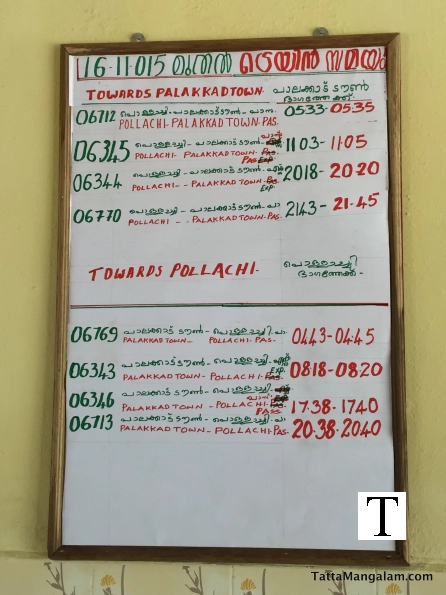 16-11-015 മുതൽ ട്രെയിൻ സമയം
TOWARDS PALAKKADTOWN. പാലക്കാട് ടൗൺ
ഭാഗത്തേക്ക്
06712 പൊള്ളാച്ചി-പാലക്കാട് ടൗൺ-പാസ 0533-0535
POLLACHI-PALAKKAD TOWN-PAS.
06345 പൊള്ളാച്ചി - പാലക്കാട് ടൗൺ- 1103-1105
POLLACHI- PALAKKAD TOWN-
PAS
06344 പൊള്ളാച്ചി - പാലക്കാട് ടൗൺ- 2018-2020
POLLACHI- - PALAKKAD TOWN-
Exp.
06770 പൊള്ളാച്ചി - പാലക്കാട് ടൗൺ-പാ 2143-21.45
POLLACHI - - PALAKKAD TOWN-PAS.
TOWARDS POLLACHI- പൊള്ളാച്ചി
ഭാഗത്തേക്ക്-
06769 പാലക്കാട് ടൗൺ- പൊള്ളാച്ചി-പാ. 0443-04.45
PALAKKAD TOWN- POLLACHI-PAS.
06343 പാലക്കാട് ടൗൺ- പൊള്ളാച്ചി- 0818-0820
Exp.
PALAKKAD TOWN- POLLACHI-
06346 പാലക്കാട് ടൗൺ - പൊള്ളാച്ചി- 17.38-1740
PALAKKAD TOWN - POLLACHI-
PASS
06713 പാലക്കാട് ടൗൺ - പൊള്ളാച്ചി-പാ 20.38-2040
PALAKKAD TOWN - POLLACHI-PAS.
T
TattaMangalam.com